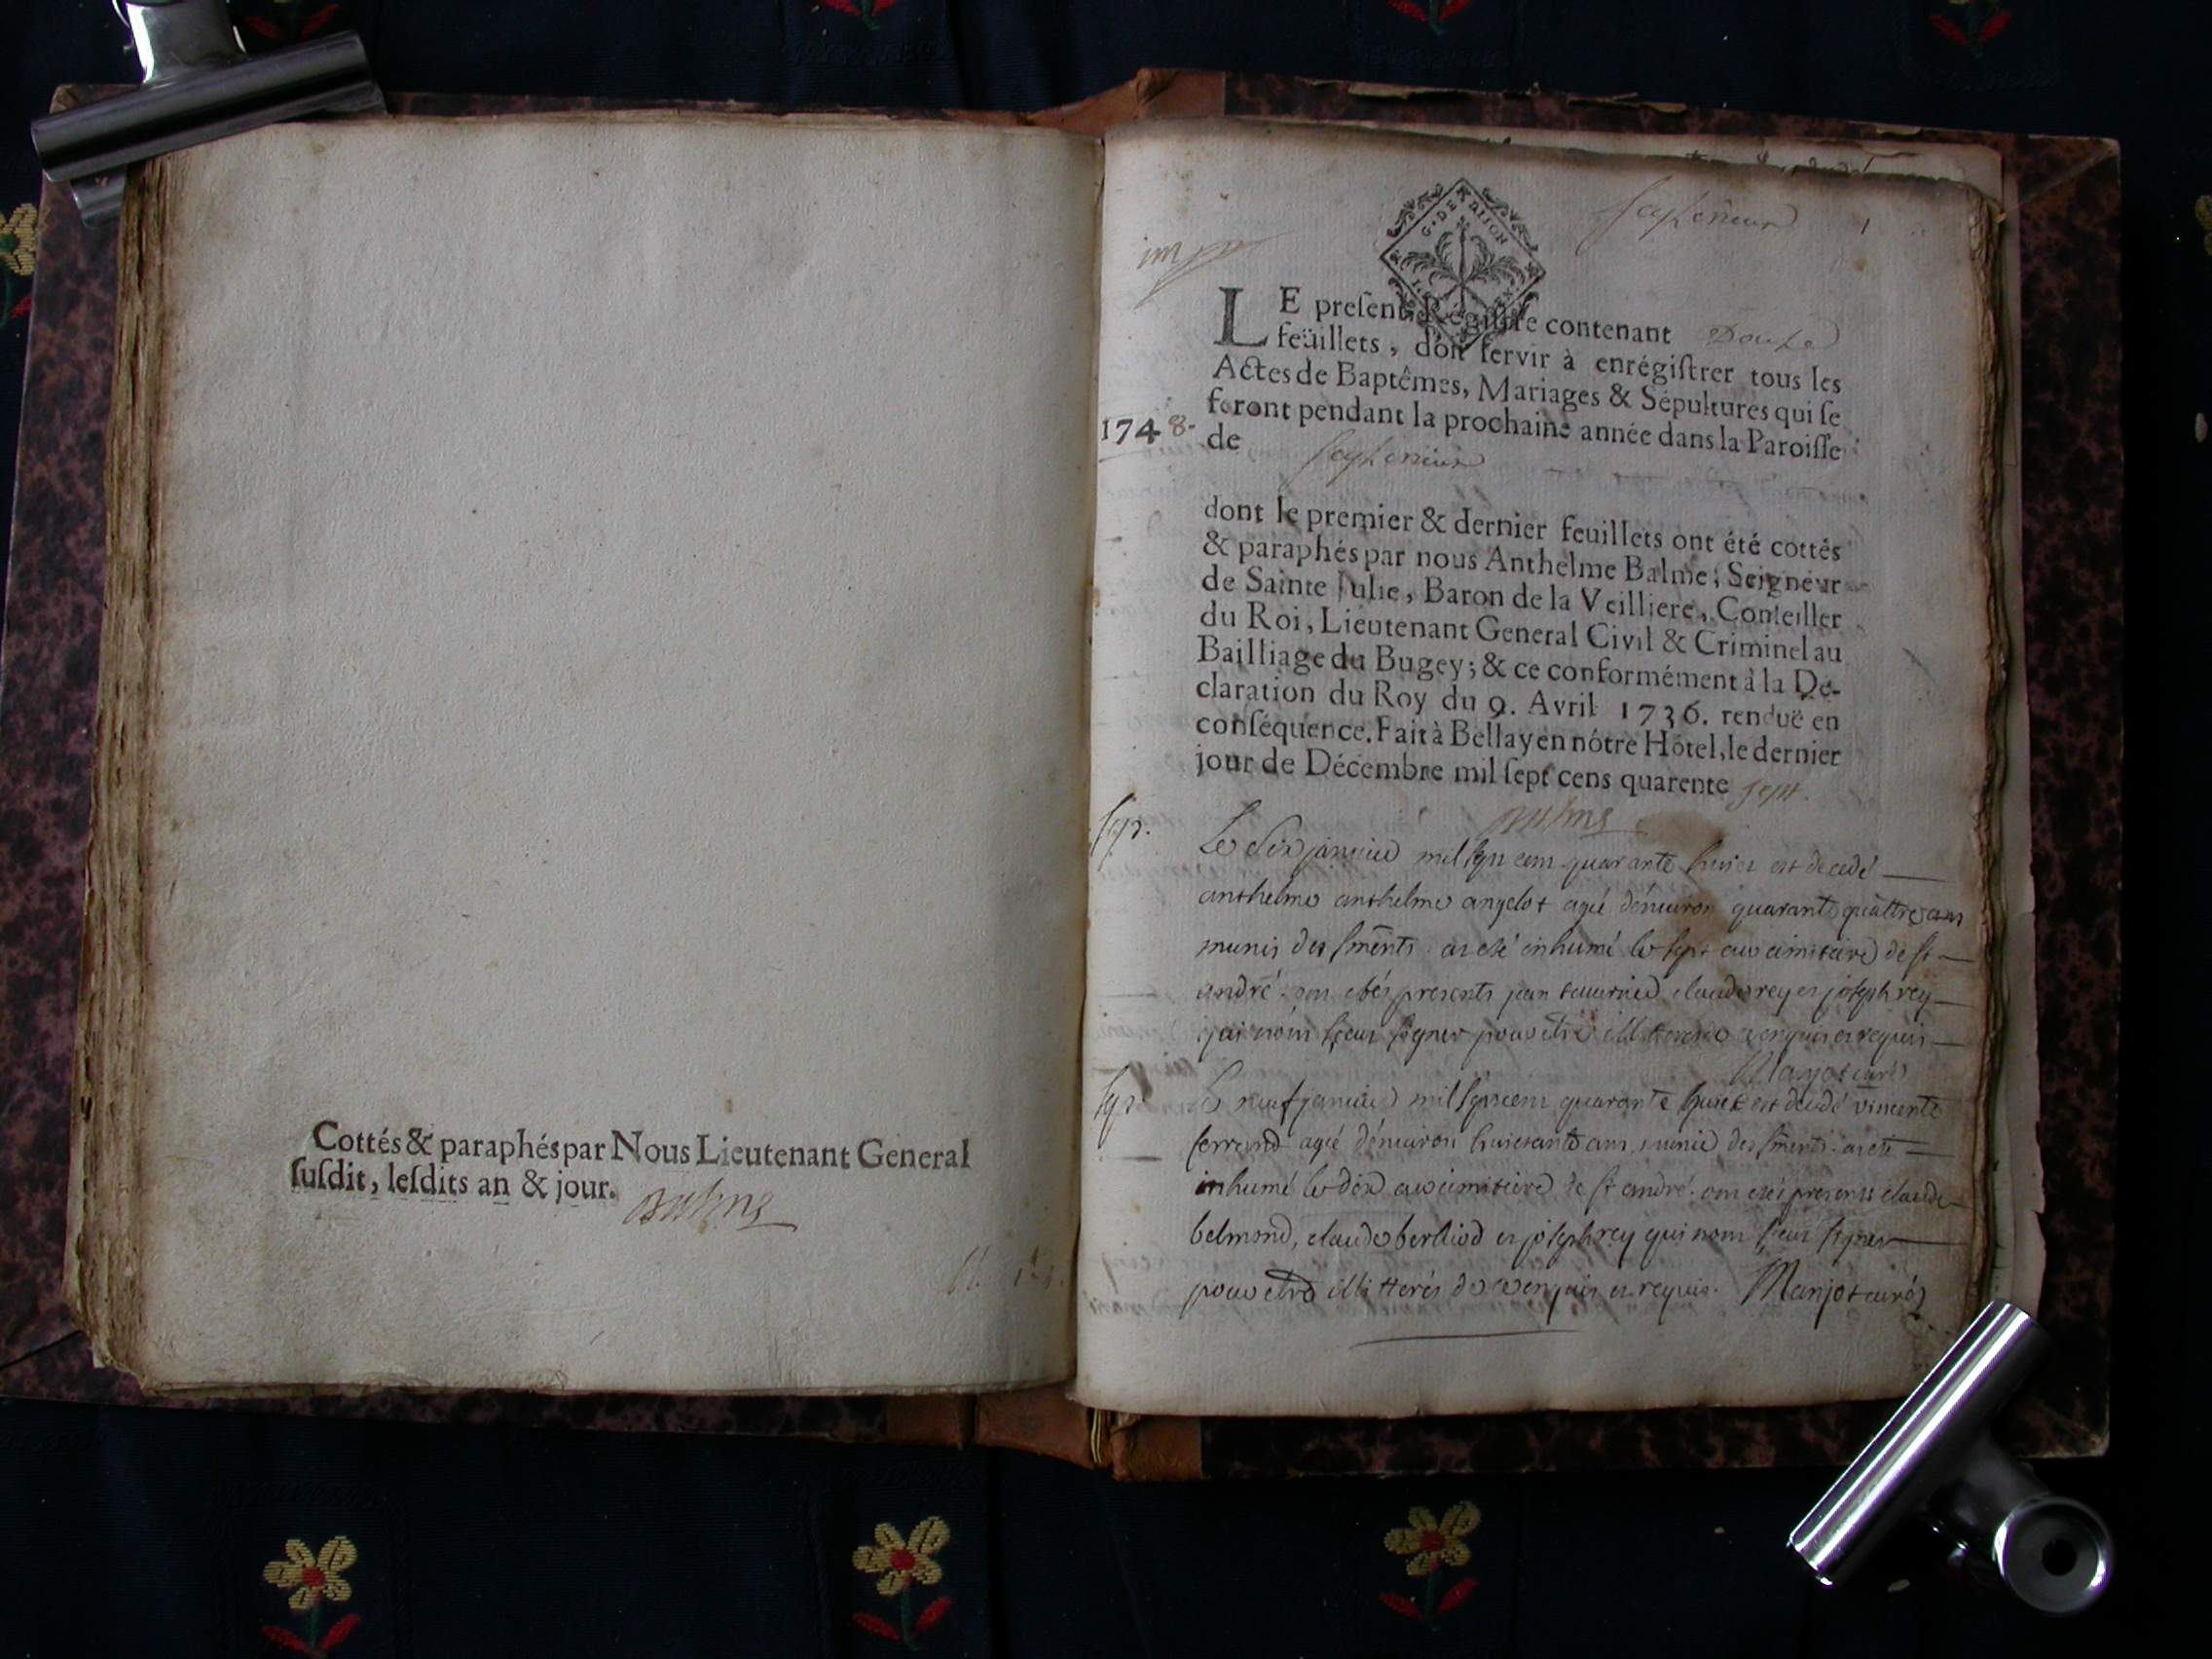 Cottés & paraphés par Nous Lieutenant General
ſuſdit, leſdits an & jour.
G. DE DIJON
1
LE preſent Régiſtre contenant Douze
feüillets, doit ſervir à enrégiſtrer tous les
Actes de Baptêmes, Mariages & Sépultures qui ſe
feront pendant la prochaine année dans la Paroiſſe
1748.
de Seyſſerieux
dont le premier & dernier feuillets ont été cottés
& paraphés par nous Anthelme Balme, Seigneur
de Sainte Julie, Baron de la Veilliere, Conſeiller
du Roi, Lieutenant General Civil & Criminel au
Bailliage du Bugey; & ce conformément à la De-
claration du Roy du 9. Avril 1736. renduë en
conſéquence. Fait à Bellay en nôtre Hôtel, le dernier
jour de Décembre mil ſept cens quarente sept.
Sep.
Le Six janvier mil sept cent quarante huict est decedé
anthelme anthelme angelot agé d'enuiron quarante quattre ans
munis des sments. a esté inhumé le sept au cimitaire de st
andré. ont étés presents jean claude rey et joseph rey
qui n'ont sceu signer pour être illitterés de enquis et requis
Manjot curé
Sep.
Le neuf janvier mil sept cent quarante huict est decedé vincent
ferrand agé d'enuiron huictante ans, munie des sments. a esté
inhumé le dix au cimitaire de st andré. ont étés presents claude
belmond, claude berliod et joseph rey qui n'ont sceu signer
pour etre illitterés de ce enquis et requis. Manjot curé